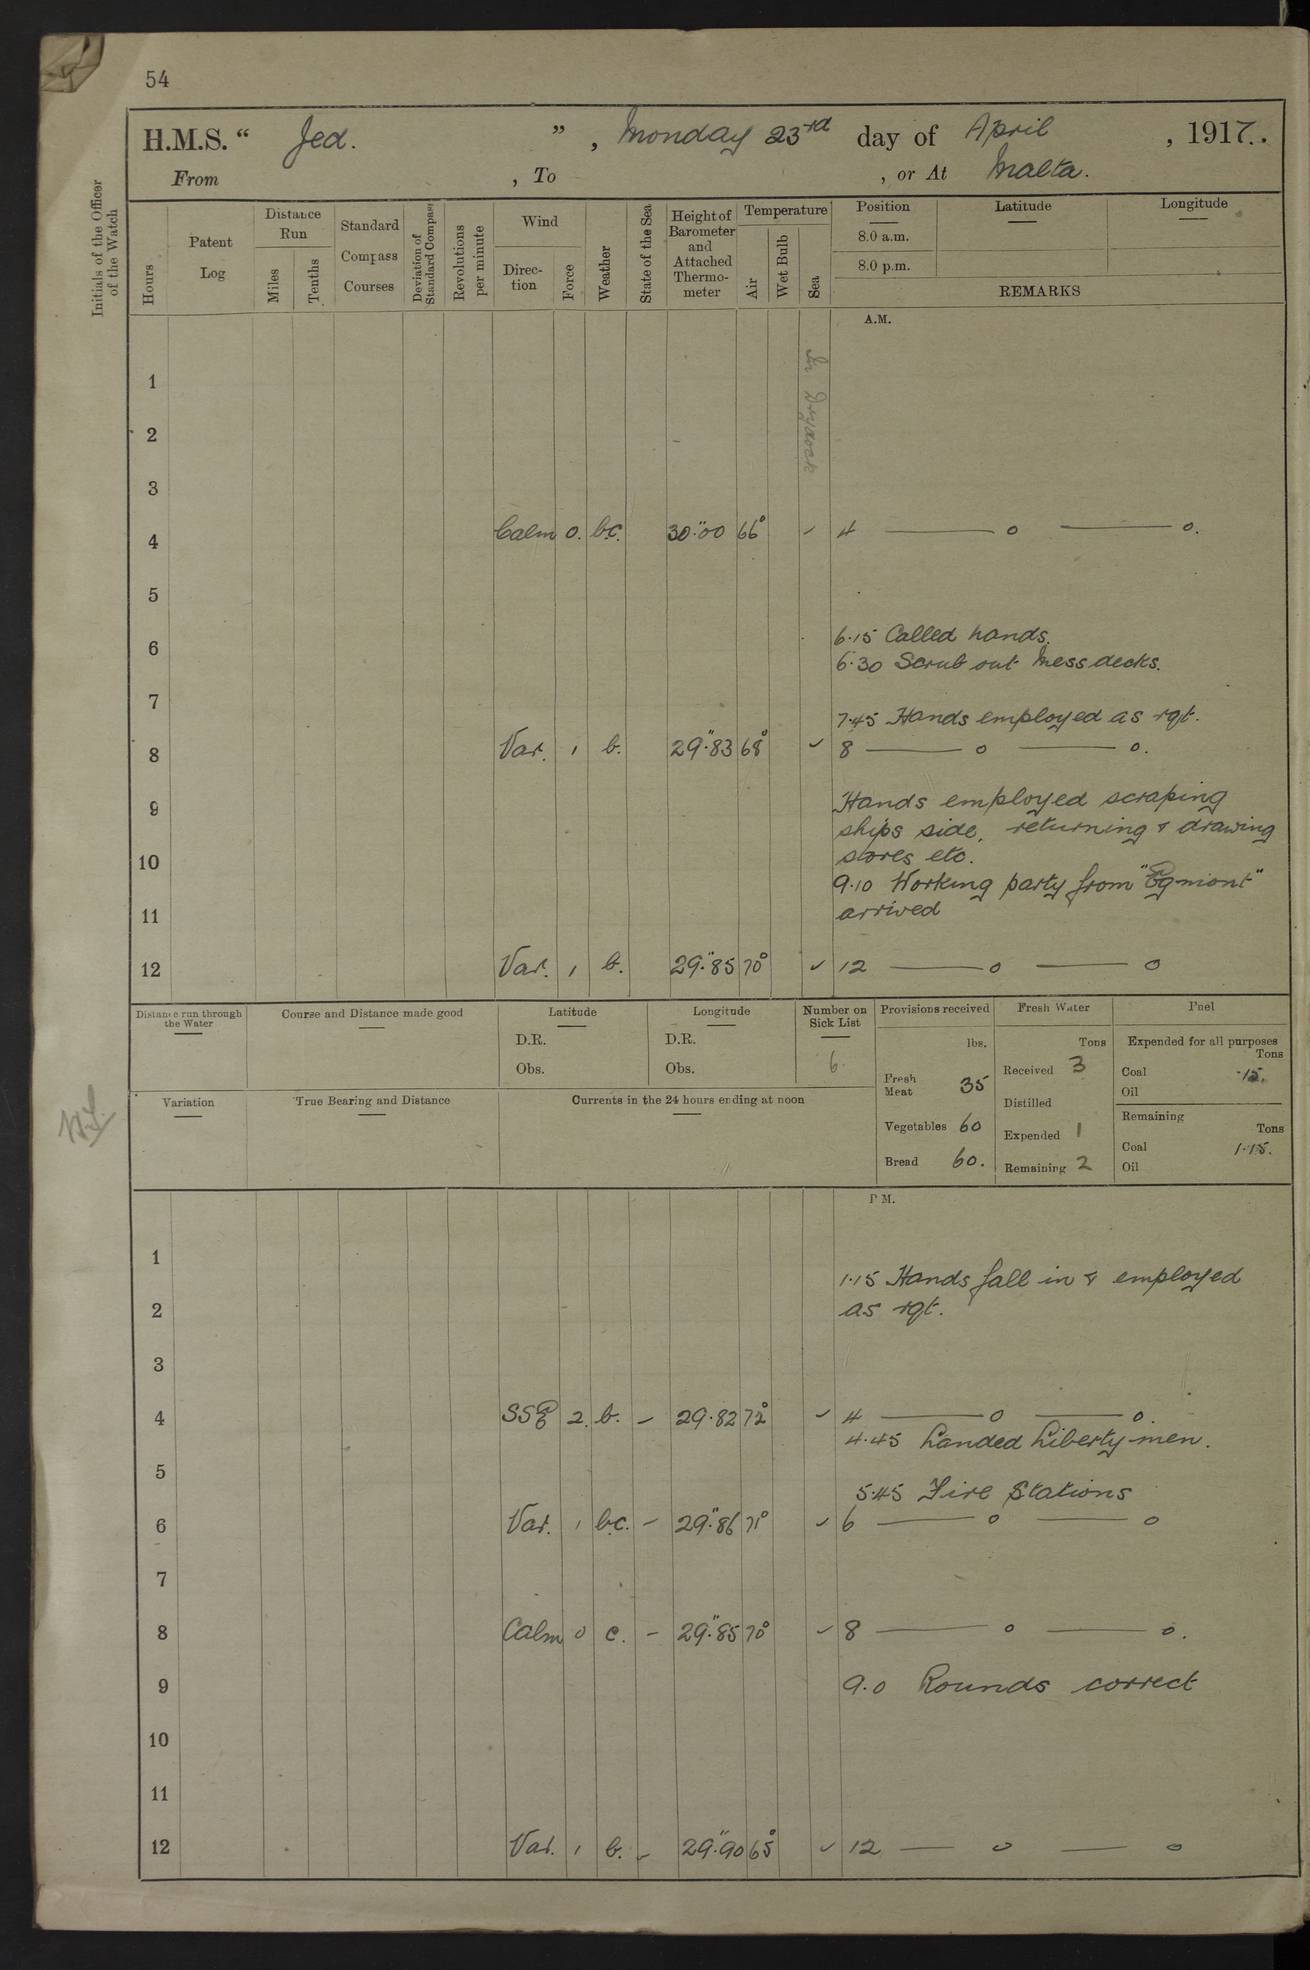 54
H.M.S. “ Jed. ” , Monday 23rd day of April , 1917.
From , To , or At Malta.
Initials of the Officer of the Watch
Hours
Patent Log
Distance Run
Miles
Tenths
Standard Compass Courses
Deviation of Standard Compass
Revolutions per minute
Wind
Direc-tion
Force
Weather
State of the Sea
Height of Barometer and Attached Thermo-meter
Temperature
Air
Wet Bulb
Sea
Position Latitude Longitude
8.0 a.m.
8.0 p.m.
REMARKS
A.M.
In Drydock
1
2
3
4 Calm 0. b.c. 30."00 66° 4 —— o —— o.
5
6.15 Called hands.
6
6.30 Scrub out Mess decks.
7
7.45 Hands employed as rqt.
8 Var. 1 b. 29."83 68° ✓ 8 —— o —— o.
9 Hands employed scraping
ships side, returning & drawing
10 stores etc.
9.10 Working party from "Egmont"
11 arrived
12 Var. 1 b. 29."85 70° ✓ 12 —— o —— o
Distance run through the Water
Course and Distance made good
Latitude
D.R.
Obs.
Longitude
D.R.
Obs.
Number on Sick List
6.
Provisions received
lbs.
Fresh Meat 35
Vegetables 60
Bread 60.
Fresh Water
Tons
Received 3
Distilled
Expended 1
Remaining 2
Fuel
Expended for all purposes
Tons
Coal .15.
Oil
Remaining
Tons
Coal 1.15.
Oil
Variation
True Bearing and Distance
Currents in the 24 hours ending at noon
P.M.
1
1.15 Hands fall in & employed
2 as rqt.
3
4 SSE 2. b. - 29.82 72° ✓ 4 —— o —— o.
4.45 Landed Liberty men.
5
5.45 Fire Stations
6 Var. 1 b.c. - 29."86 71° ✓ 6 —— o —— o
7
8 Calm 0 c. - 29."85 70° ✓ 8 —— o —— o.
9 9.0 Rounds correct
10
11
12 Var. 1 b. - 29."90 65° ✓ 12 —— o —— o